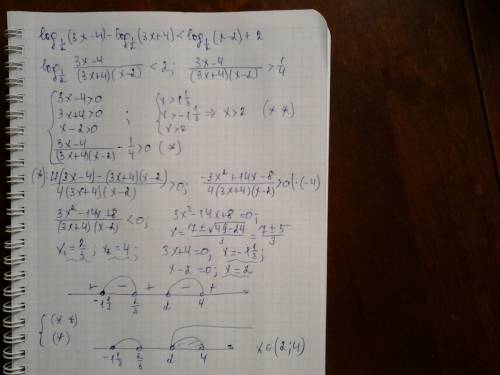 log_{1/2}(3x-4) - log_{1/2}(3x+4) < log_{1/2}(x-2) + 2
log_{1/2} \frac{3x-4}{(3x+4)(x-2)} < 2; \frac{3x-4}{(3x+4)(x-2)} > \frac{1}{4}
{ 3x-4>0 { x>1\frac{1}{3}
3x+4>0 ; x>-1\frac{1}{3} ⇒ x>2 (**)
x-2>0 x>2
\frac{3x-4}{(3x+4)(x-2)} - \frac{1}{4} > 0 (*)
(*): \frac{4(3x-4)-(3x+4)(x-2)}{4(3x+4)(x-2)} > 0; \frac{-3x²+14x-8}{4(3x+4)(x-2)} > 0 | ·(-4)
\frac{3x²-14x+8}{(3x+4)(x-2)} < 0; 3x²-14x+8=0;
x = \frac{7±\sqrt{49-24}}{3} = \frac{7±5}{3}
x₁ = \frac{2}{3}; x₂ = 4; 3x+4=0; x=-1\frac{1}{3};
x-2=0; x=2
+ - + - +
-1\frac{1}{3} \frac{2}{3} 2 4
{ (**)
(*)
-1\frac{1}{3} \frac{2}{3} 2 4 x∈(2;4)